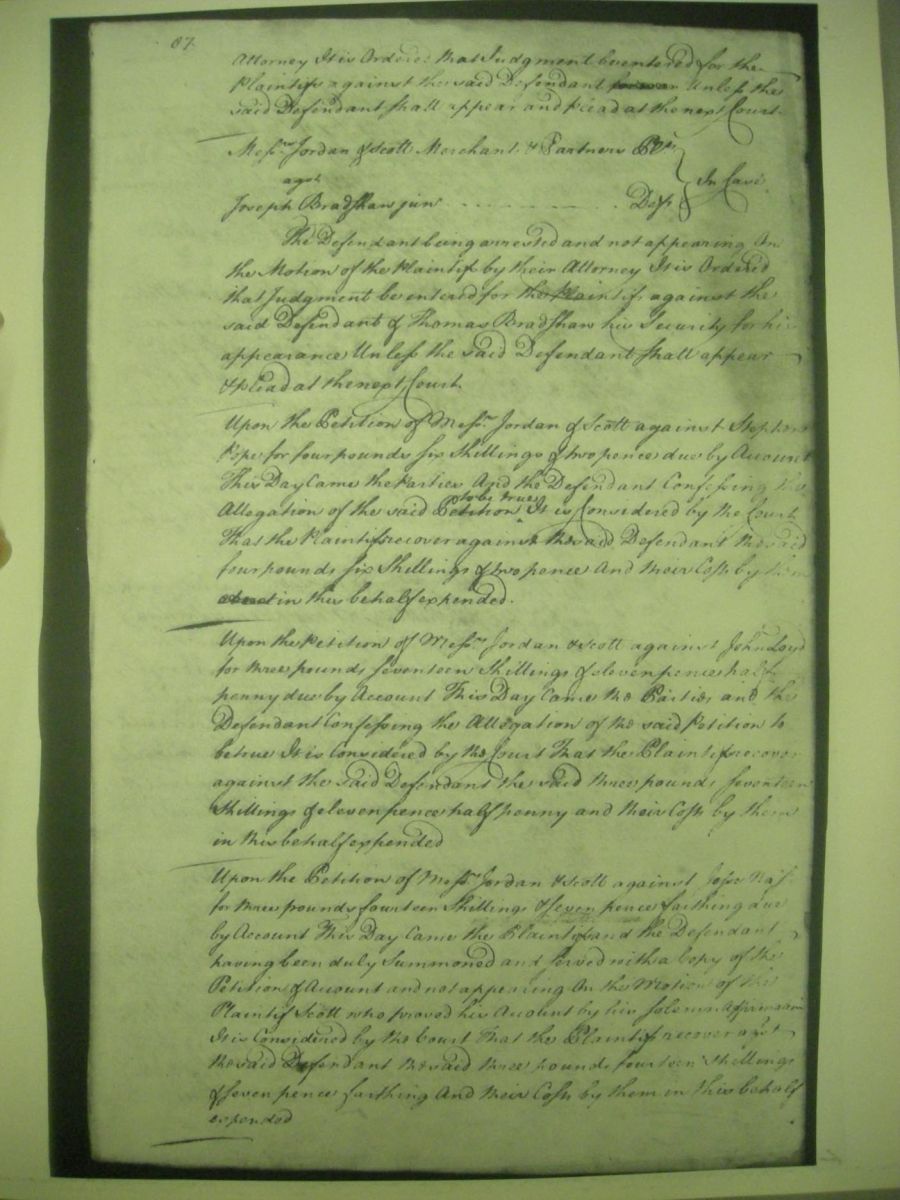 87
Attorney It is Ordered that Judgment be entered for the
Plaintifs against the said Defendant Unless the
said Defendant shall appear and plead at the next Court
Messrs Jordan & Scott Merchants & Partners Pls
agst
In Case
Joseph Bradshaw junr Deft
The Defendant being arrested and not appearing On
the Motion of the Plaintifs by their Attorney It is Ordered
that Judgment be entered for the Plaintifs against the
said Defendant & Thomas Bradshaw his Security for his
appearance Unless the said Defendant shall appear
& plead at the next Court
Upon the Petition of Messrs Jordan & Scott against Stephen
Pope for four pounds six Shillings & two pence due by Account
This Day Came the Parties And the Defendant Confessing the
to be true
Allegation of the said Petition It is Considered by the Court
That the Plaintifs recover against the said Defendant the said
four pounds six Shillings & two pence And their Costs by them
in this behalf expended.
Upon the Petition of Messrs Jordan & Scott against John Loyd
for three pounds seventeen Shillings & eleven pence half
penny due by Account This Day Came the Parties and the
Defendant Confessing the Allegation of the said Petition to
be true It is Considered by the Court That the Plaintifs recover
against the said Defendant the said three pounds seventeen
Shillings & eleven pence half penny and their Costs by them
in this behalf expended
Upon the Petition of Messrs Jordan & Scott against
for three pounds fourteen Shillings & seven pence farthing due
by Account This Day Came the Plaintifs and the Defendant
having been duly Summoned and served with a Copy of the
Petition & Account and not appearing On the Motion of the
Plaintif Scott who proved his Account by his solemn Affirmation
It is Considered by the Court That the Plaintifs recover agst
the said Defendant the said three pounds fourteen Shillings
& seven pence farthing And their Costs by them in this behalf
expended